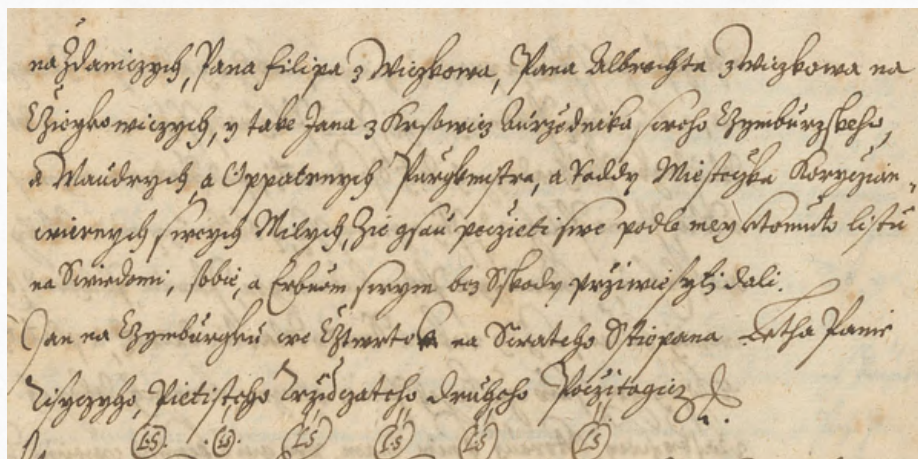 na Zdaniczych, Pana Filipa z Wiczkowa, Pana Albrechta z Wiczkowa na
a take Jana z aurzednika sweho Czymburzskeho,
a Maudrych, a Oppatrnych Purgkmistra, a Raddy Miestecżka Koryczan,
wiernych swych Milych, żie gsau peczieti swe podle mey k tomuto listu
na Swiedomi, sobie, a Erbuom swym bez Sskody prziwiesyti dali.
Jan na Czymburgku we Cztwrtek na Swateho Sstiepana Letha Panie
Tisyczyho, Pietisteho Trzidczateho druheho Pocżitagicz &c.
L.S. L.S. L.S. L.S. L.S. L.S.